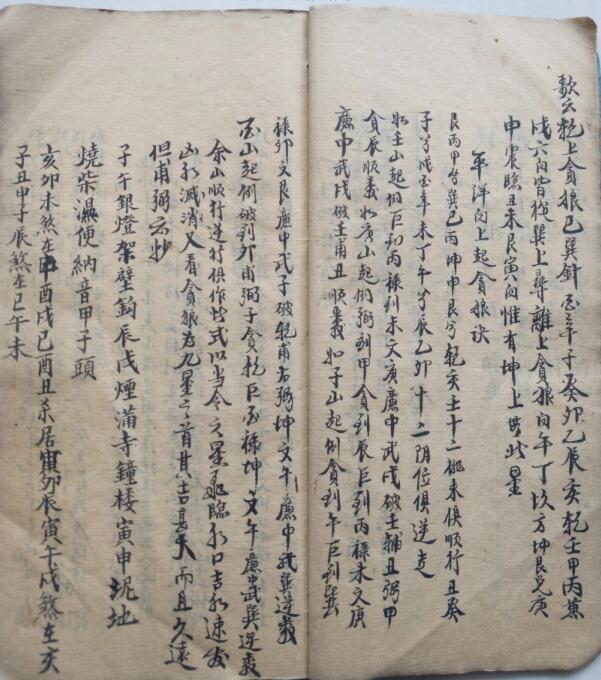 歌云乾上貪狼已巽針酉辛子癸卯乙辰亥乾壬甲丙兼
戌六向皆從巽上尋離上貪狼向午丁坎方坤艮兑庚
申震臨丑未艮寅向惟有坤上此星
平洋向上起貪狼訣
艮丙甲兮巽巳丙坤申艮兮乾亥壬十二位來俱順行丑癸
子兮戌酉辛未丁午兮辰乙卯十二阴位俱逆走
如壬山起例巨到丙祿到未文庚廉中武戌破壬輔丑弼甲
貪辰順義如庚山起例弼到甲貪到辰巨到丙祿未文庚
廉中武戌破壬甫丑順義如子山起例貪到午巨到巽
祿卯文艮廉中武子破乾甫右弼坤文午廉中武巽逆義
酉山起例破到卯甫弼子貪乾巨酉祿坤文午廉中武巽逆義
余山順行逆行俱作此式以当令之星飛臨水口吉水速发
凶水減消又看貪狼为九星之首其吉甚大而且久遠
但甫弼云妙
子午銀燈架壁鈎辰戌煙滿寺鐘楼寅申坭地
燒柴濕便納音甲子頭
亥卯未煞在申酉戌巳酉丑杀居寅卯辰寅午戌煞在亥
子丑申子辰煞在巳午未